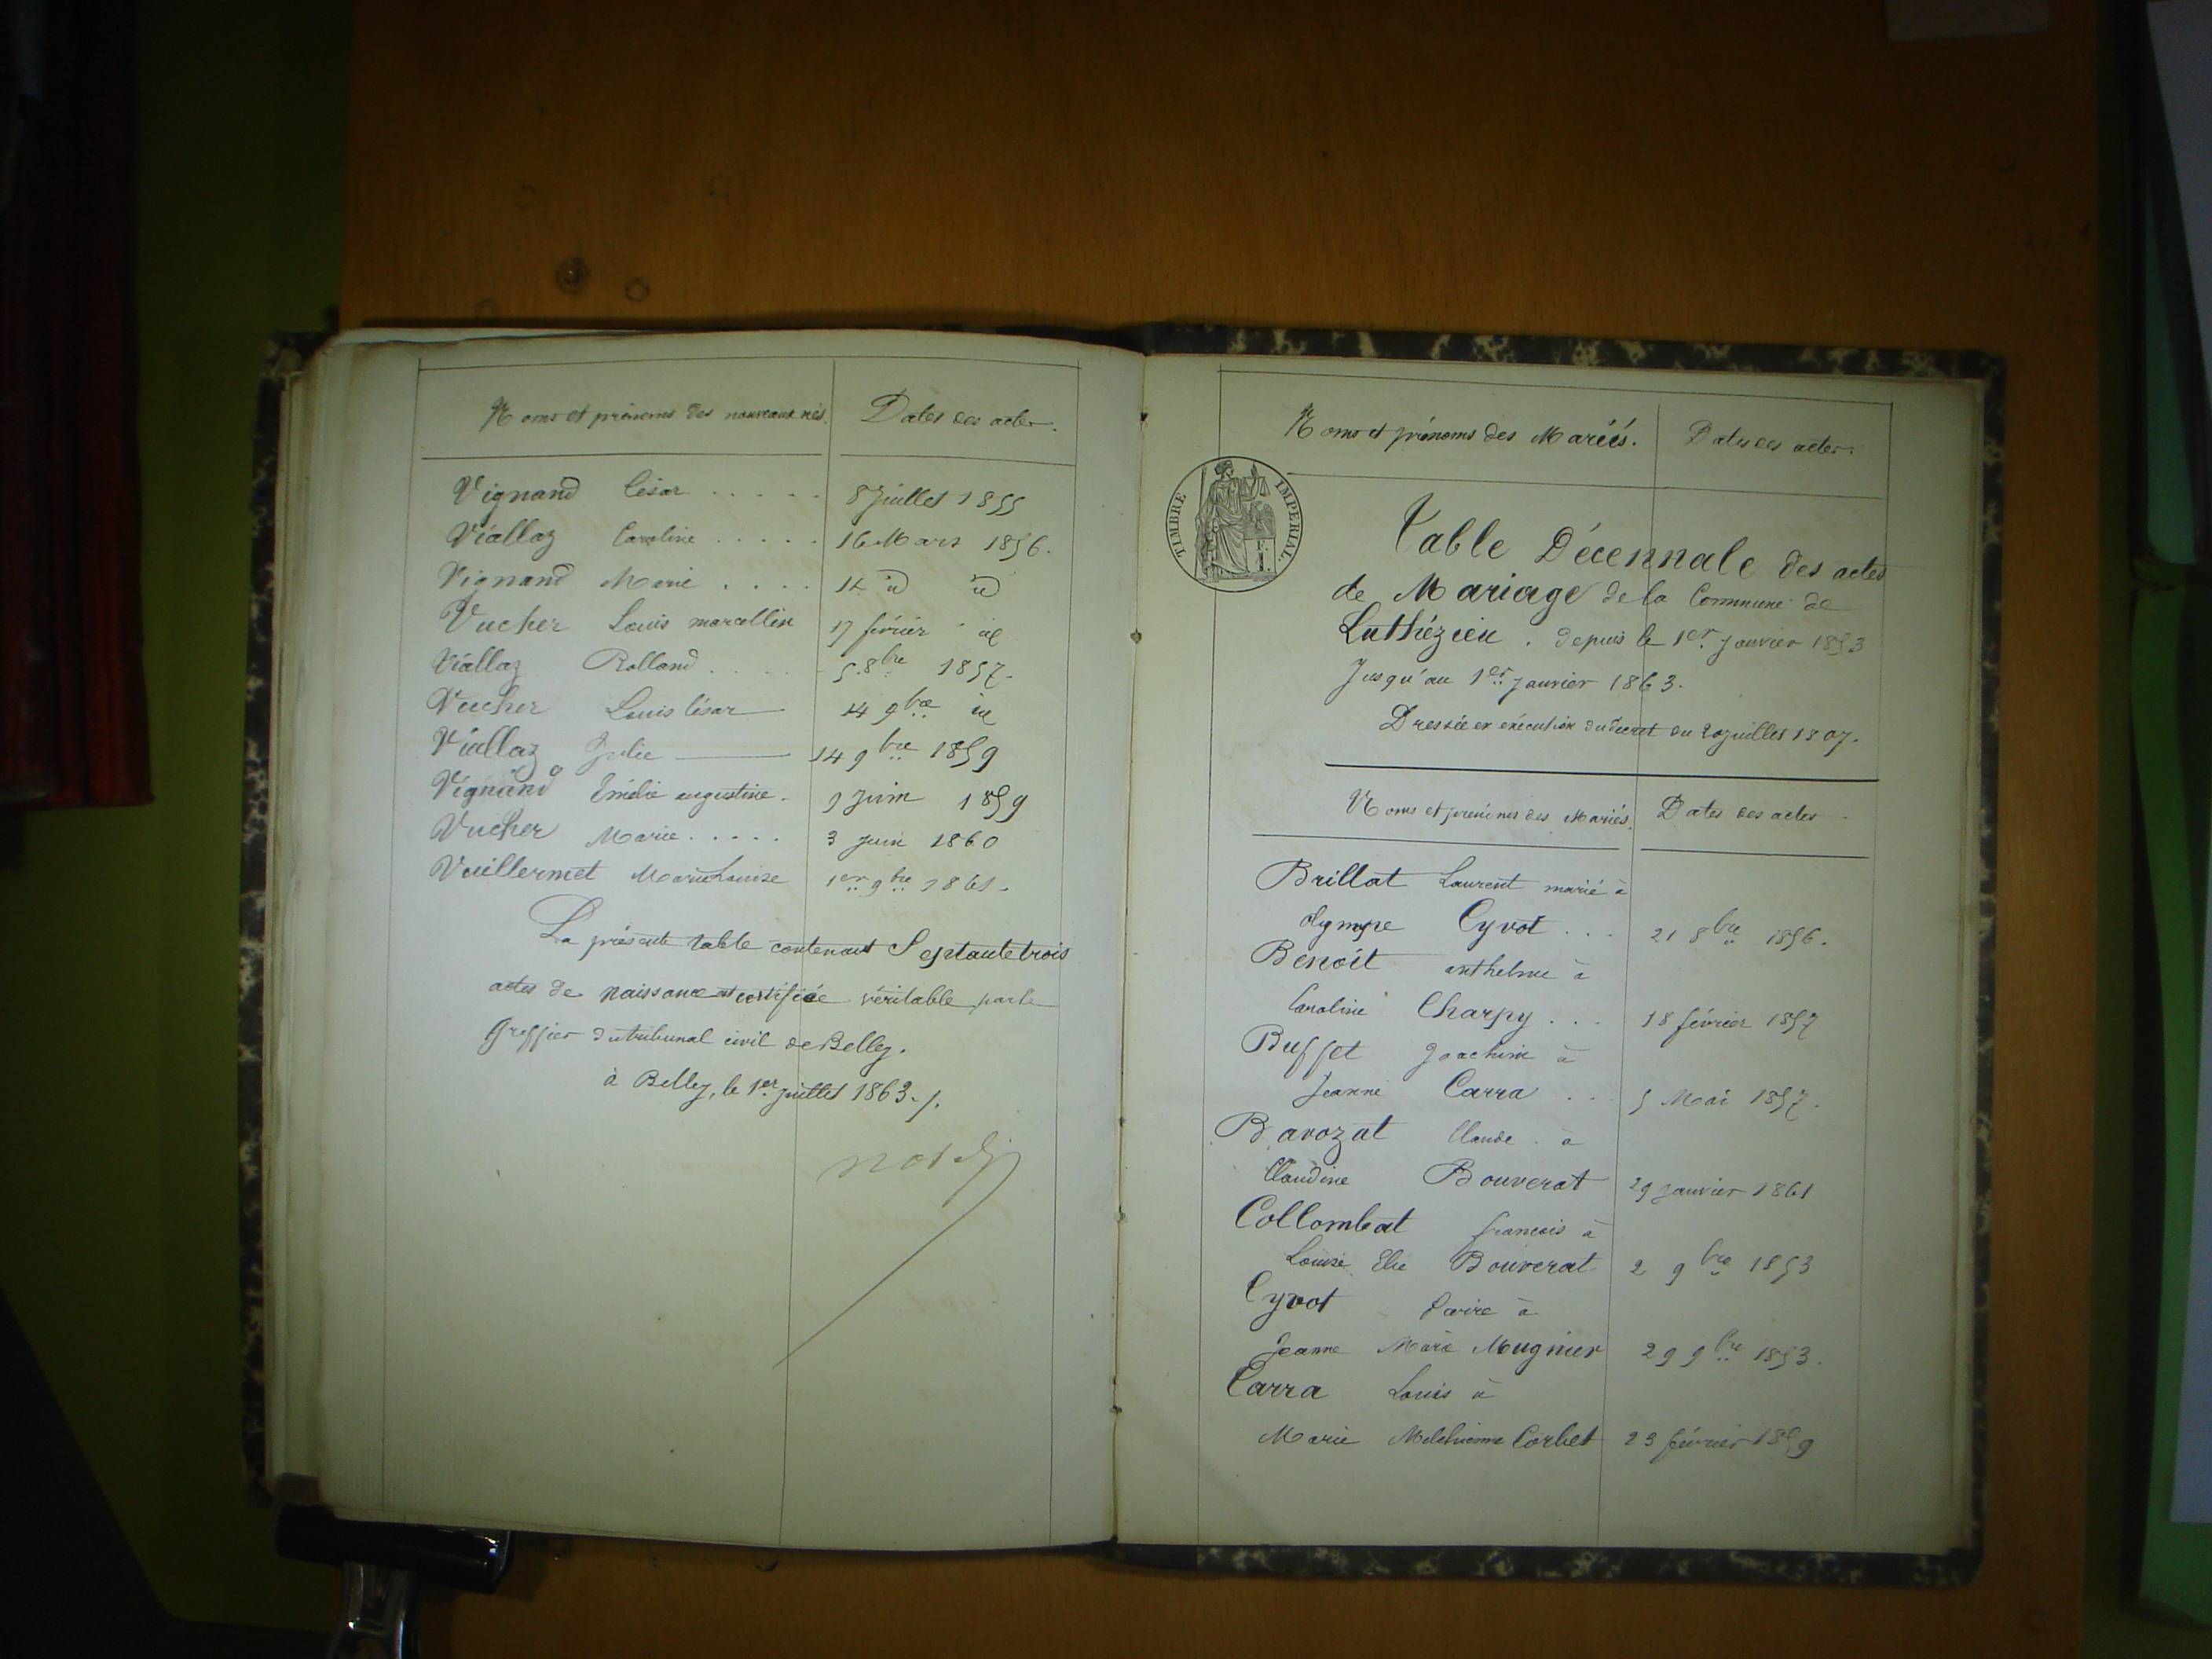 Noms et prénoms des nouveaux nés. Dates des actes.
Vignand César ..... 8 Juillet 1855
Viallaz Caroline ..... 16 Mars 1856.
Vignand Marie .... 12 id id
Vucher Louis marcellin 17 février id
Viallaz Rolland .... 5 8bre 1857.
Vucher Louis César 14 9bre id
Viallaz Julie 14 9bre 1859
Vignand Emélie augustine. 9 Juin 1859
Vucher Marie ..... 3 Juin 1860
Vuillermet Marie Louise 1er 9bre 1861.
La présente table contenant Septante trois
actes de naissance est certifiée véritable par le
Greffier du tribunal civil de Belley.
à Belley, le 1er juillet 1863./.
Noms et prénoms des Mariés. Dates des actes.
TIMBRE IMPERIAL.
Table Décennale des actes
de Mariage de la Commune de
Luthézieu. depuis le 1er Janvier 1853
Jusqu'au 1er Janvier 1863.
Dressée en exécution du décret du 20 juillet 1807.
Noms et prénoms des Mariés. Dates des actes
Brillat Laurent marié à
olympe Cyvot ... 21 8bre 1856.
Benoît anthelme à
Caroline Charpy ... 18 février 1857
Buffet Joachim à
Jeanne Carra ... 5 Mai 1857.
Bavozat Claude . à
Claudine Bouverat 29 Janvier 1861
Collombat francois à
Louise Elie Bouverat 2 9bre 1853
Cyvot à
Jeanne Marie Mugnier 29 9bre 1853.
Carra Louis à
Marie Corbet 23 février 1859